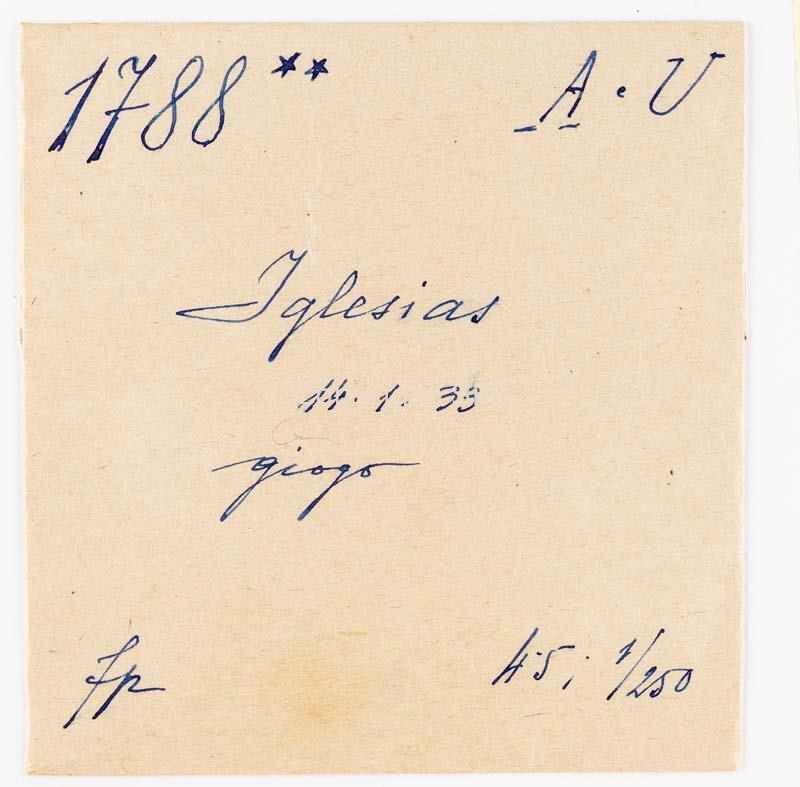 1788 ** A. U
Iglesias
14. 1. 33
giogo
fp
4.5; 1/250